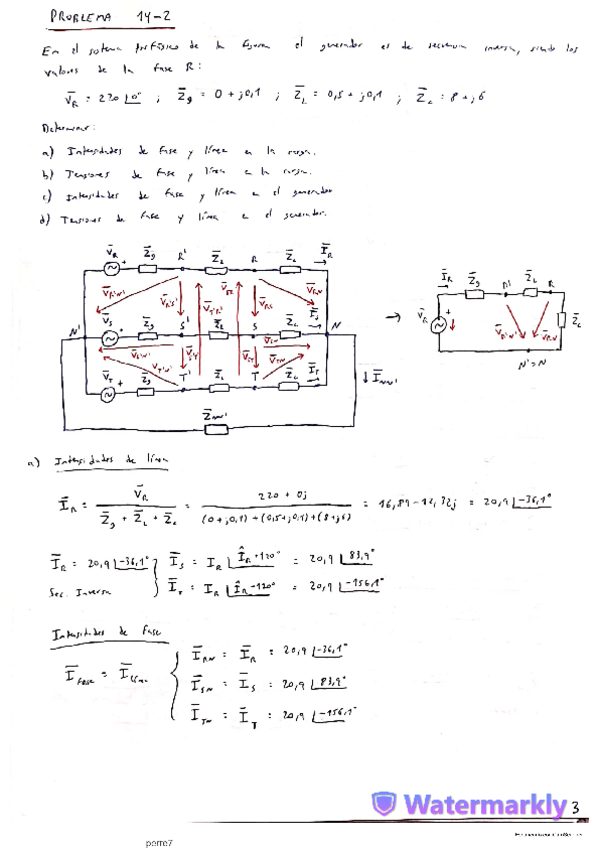 PROBLEMA 14-2
En el sistema trifásico de la figura el generador es de secuencia inversa, siendo los
valores de la fase R:
V̅R = 220 |0° ; Z̅g = 0 + j0,1 ; Z̅L = 0,5 + j0,1 ; Z̅c = 8 + j6
Determinar:
a) Intensidades de fase y línea en la carga.
b) Tensiones de fase y línea en la carga.
c) Intensidades de fase y línea en el generador
d) Tensiones de fase y línea en el generador.
V̅R + Z̅g R' Z̅L R Z̅c I̅R
V̅R'N' V̅R'S' V̅T'R' V̅RS V̅RN
N' V̅S Z̅g S' Z̅L S Z̅c N
V̅S'N' V̅T'N' V̅SN V̅TN
V̅T + Z̅g T' Z̅L T Z̅c I̅T
↓ I̅NN'
Z̅NN'
→
I̅R Z̅g R' Z̅L R
V̅R V̅R'N' V̅RN Z̅c
N'=N
a) Intensidades de línea
I̅R = V̅R / (Z̅g + Z̅L + Z̅c) = 220 + 0j / ((0+j0,1)+(0,5+j0,1)+(8+j6)) = 16,89-12,32j = 20,9 |-36,1°
I̅R = 20,9 |-36,1° } I̅S = IR |ÎR+120° = 20,9 |83,9°
Sec. Inversa } I̅T = IR |ÎR-120° = 20,9 |-156,1°
Intensidades de fase
I̅fase = I̅línea { I̅RN = I̅R = 20,9 |-36,1°
I̅SN = I̅S = 20,9 |83,9°
I̅TN = I̅T = 20,9 |-156,1°
Watermarkly
3
perre7